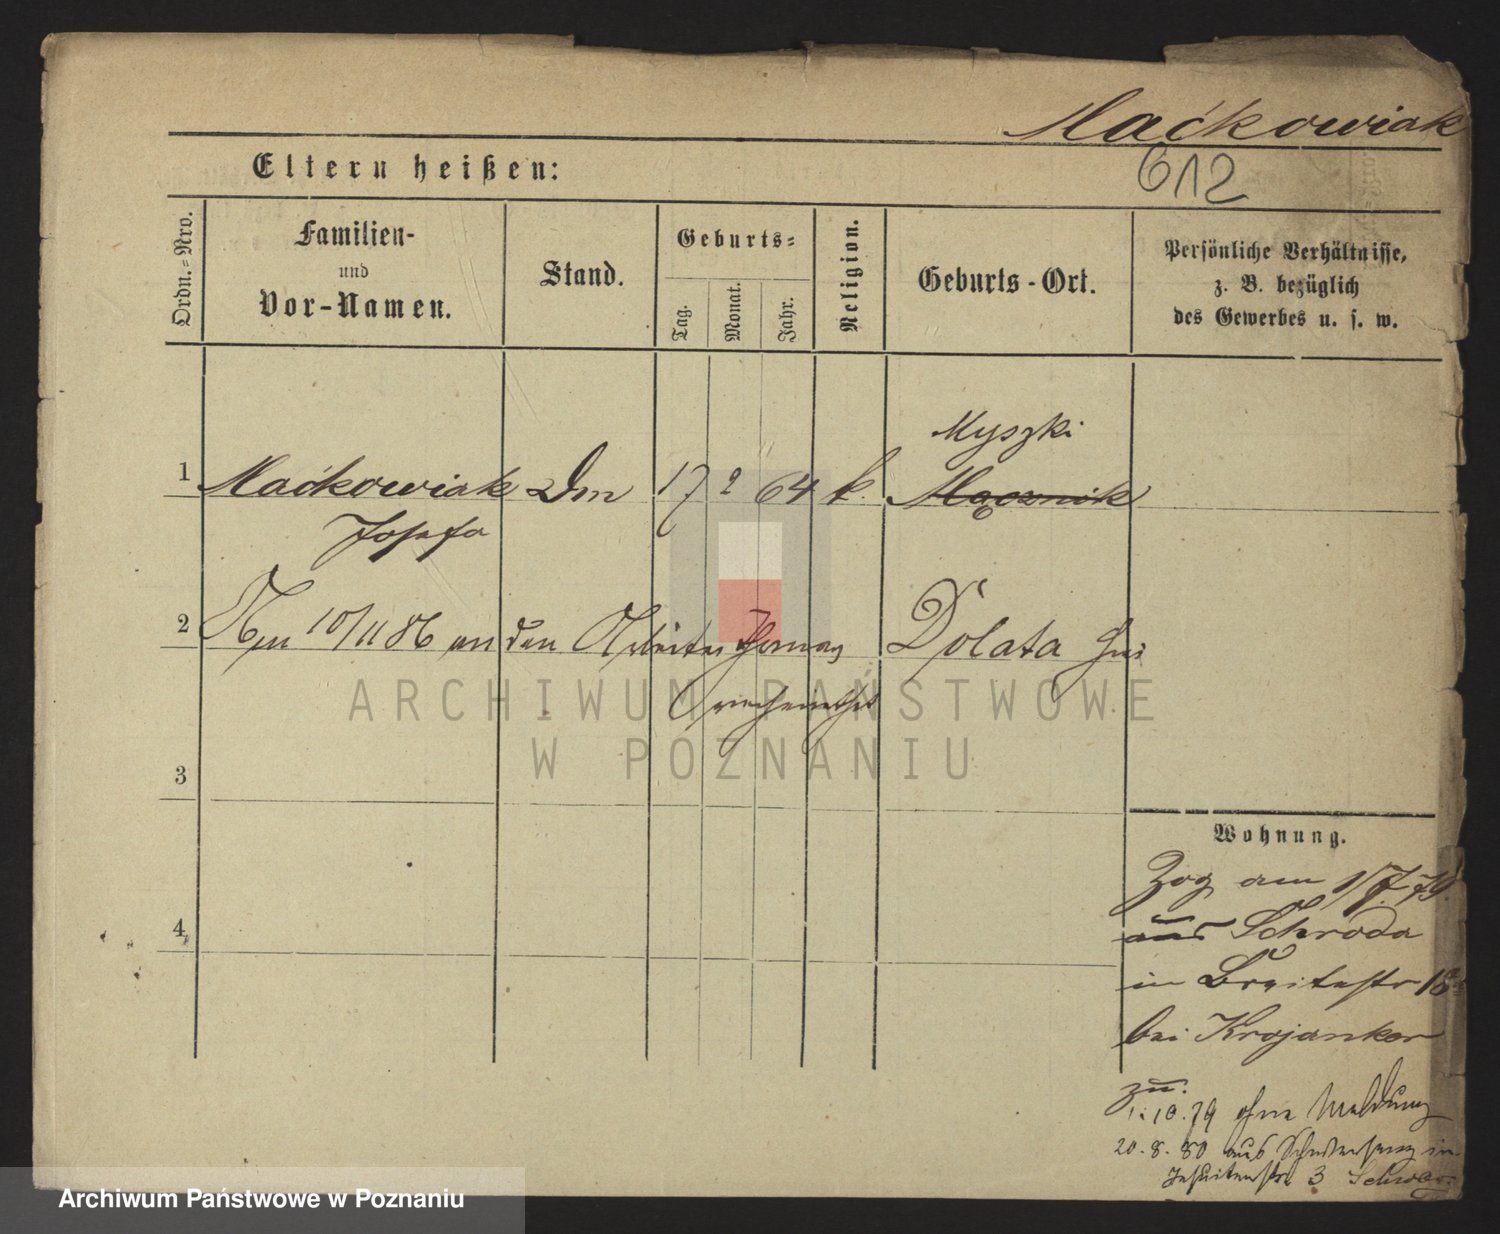 Maćkowiak
612
Eltern heißen:
Ordn.-Nro.
Familien-
und
Vor-Namen.
Stand.
Geburts-
Tag.
Monat.
Jahr.
Religion.
Geburts-Ort.
Persönliche Verhältnisse,
z. B. bezüglich
des Gewerbes u. s. w.
Myszki
1 Maćkowiak 17 2 64 k. Mącznik
Josefa
2 10/11 86 an den Arbeiter Thomas Dolata hier
verheirathet
ARCHIWUM PAŃSTWOWE
W POZNANIU
3
4
Wohnung.
Zog am 1/7.79.
aus Schroda
in Breitestr 18
bei Krojanker
zu.
1.10.79 ohne Meldung
20.8.80 aus in
Jesuitenstr 3
Archiwum Państwowe w Poznaniu